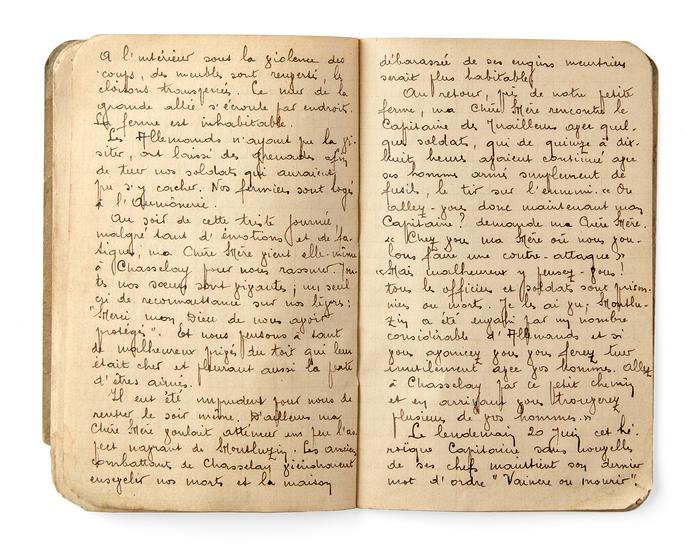 A l'intérieur sous la violence des
coups, des meubles sont renversé, les
cloisons transpercées. Le mur de la
grande allié s'écroule par endroit.
La ferme est inhabitable.
Les Allemands n'ayant pu la vi-
siter, ont laissé des grenades afin
de tuer nos soldats qui auraient
pu s'y cacher. Nos fermiers sont logé
à l'Aumônerie.
Au soir de cette triste journée,
malgré tant d'émotions et de fa-
tigues, ma Chère Mère vient elle-même
à Chasselay pour nous rassurer. Tou-
tes nos sœurs sont vivantes; un seul
cri de reconnaissance sur nos lèvres:
"Merci mon Dieu de nous avoir
protégés". Et nous pensons à tant
de malheureux privés du toit qui leur
était cher et pleurant aussi la perte
d'êtres aimés.
Il eut été imprudent pour nous de
rentrer le soir même. D'ailleurs ma
Chère Mère voulait atténuer un peu l'as-
pect navrant de Montluzin. Les anciens
combattants de Chasselay viendraient
ensevelir nos morts et la maison
débarassée de ses engins meurtriers
serait plus habitable.
Au retour, près de notre petite
ferme, ma Chère Mère rencontre le
Capitaine des Tirailleurs avec quel-
que soldats, qui de quinze à dix-
huit heures avaient continué avec
ses hommes armé simplement de
fusils, le tir sur l'ennemi. « Où
allez-vous donc maintenant mon
Capitaine? demande ma Chère Mère.
« Chez vous ma Mère où nous vou-
lons faire une contre-attaque »
« Mais malheureux y pensez-vous!
tous les officiers et soldats sont prison-
niers ou morts. Je les ai vu, Montlu-
zin a été envahi par un nombre
considérable d'Allemands et si
vous avancez vous vous ferez tuer
inutilement avec vos hommes. Allez
à Chasselay par ce petit chemin
et en arrivant vous trouverez
plusieurs de vos hommes.»
Le lendemain 20 Juin cet hé-
roïque Capitaine sans nouvelles
de ses chefs maintient son dernier
mot d'ordre "Vaincre ou mourir".